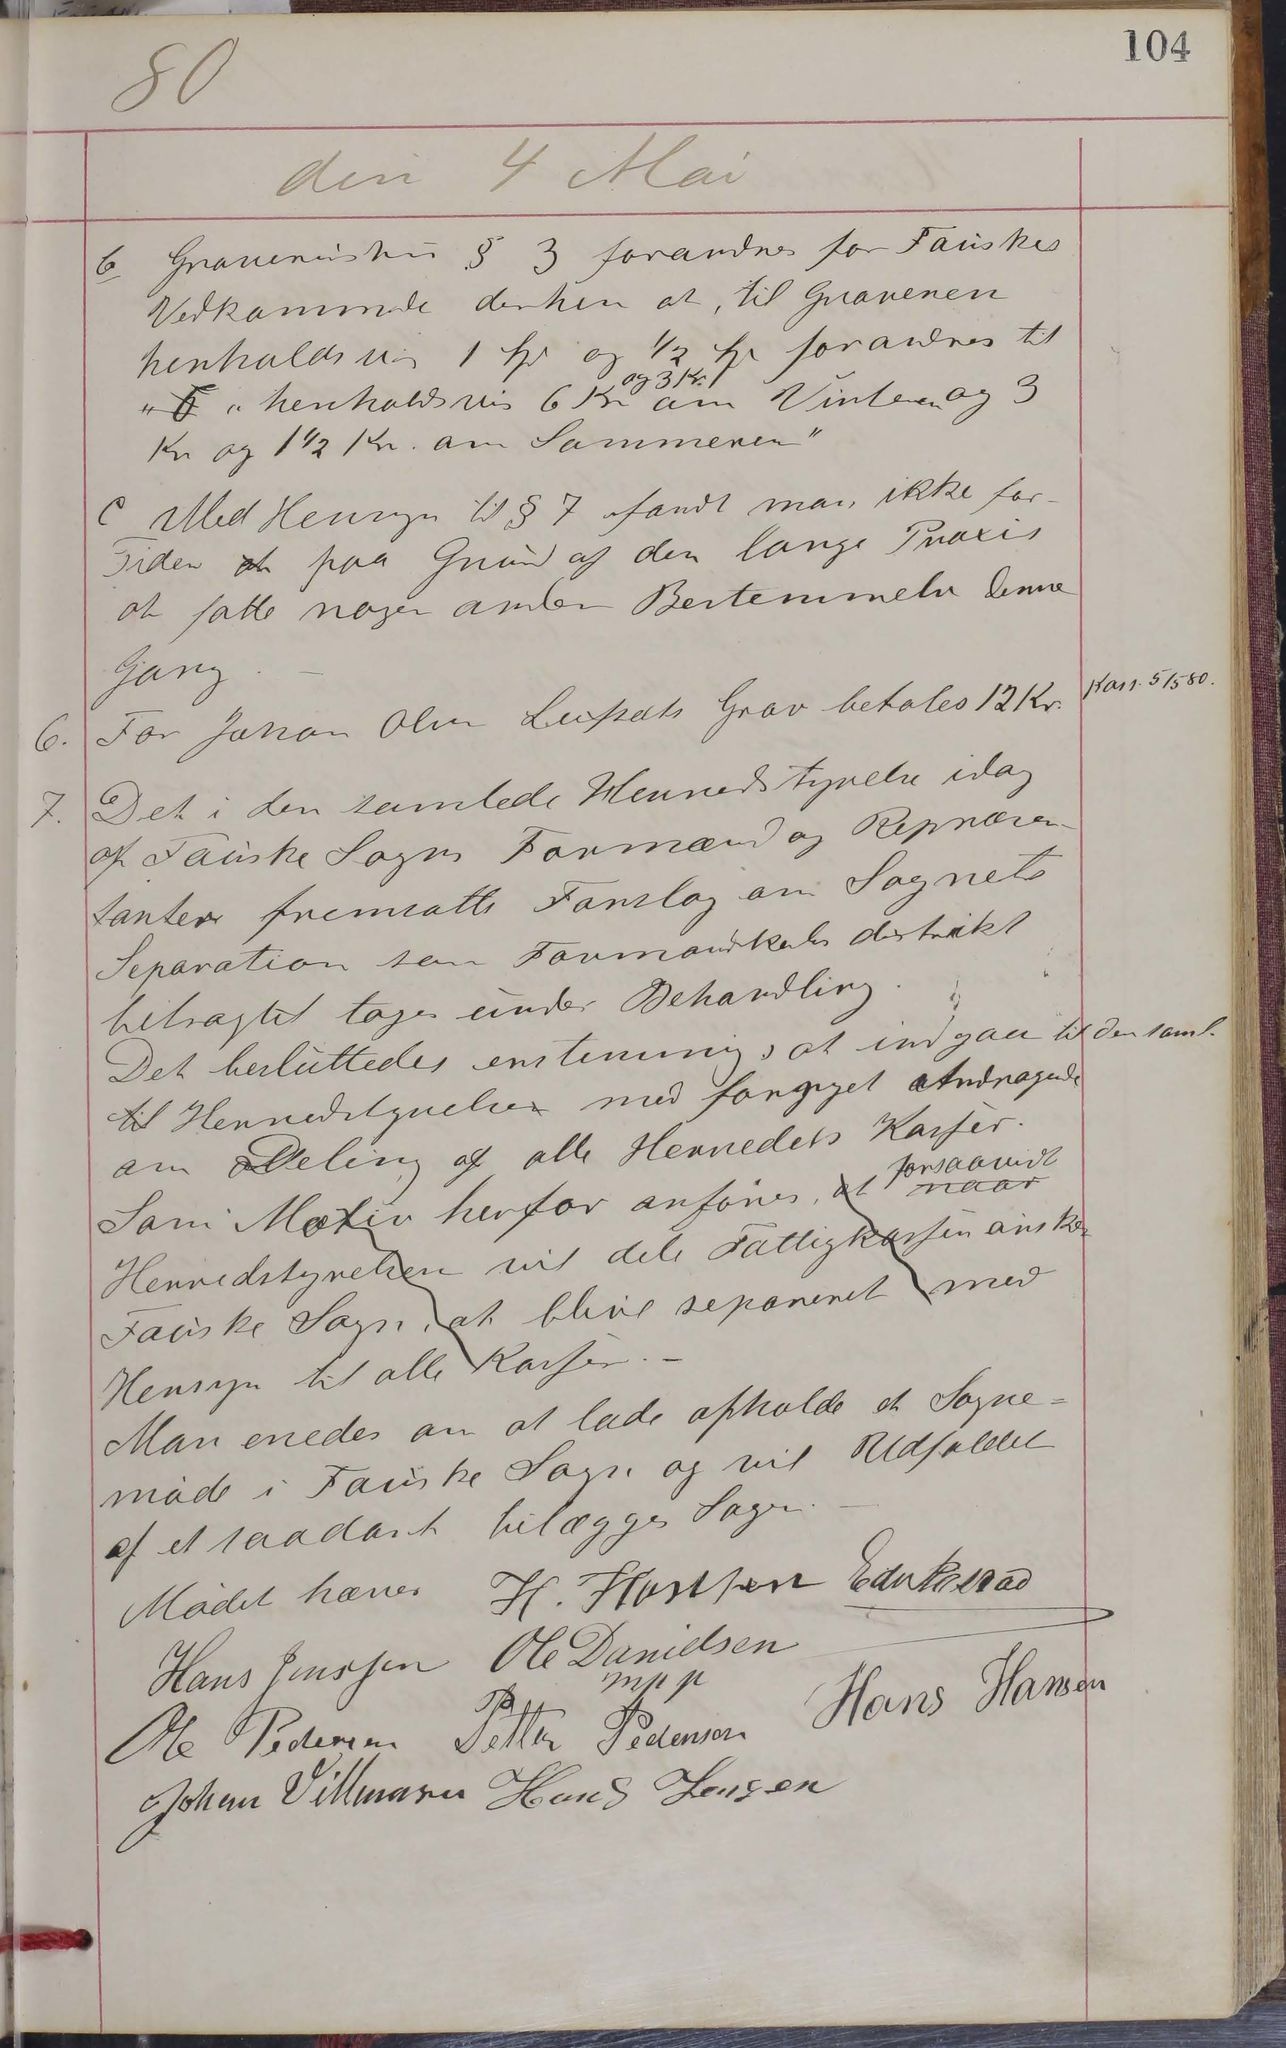 104
80
den 4 Mai
b § 3 forandres for Fauskes
Vedkommende derhen at, til Graveren
henholdsvis 1 og 1/2 forandres til
" " henholdsvis 6 Kr og 3 Kr. om Vinteren og 3
Kr og 1 1/2 Kr. om Sommeren"
c Med Hensyn til § 7 fandt man ikke for-
Tiden paa Grund af den lange Praxis
at fatte nogen anden Bestemmelse denne
Gang. –
6. For Johan Olsen Grav betales 12 Kr. Kass. 5/5 80.
7. Det i den samlede Herredstyrelse idag
af Fauske Sogns Formænd og Repræsen-
tanter fremsatte Forslag om Sognets
Separation som Formandskabsdistrikt
betragtet toges under Behandling.
Det besluttedes enstemmig, at indgaa til den saml.
til Herredstyrelse med fornyet Andragende
om Deling af alle Herredets Kasser.
Som Motiv herfor anføres, at forsaavidt naar
Herredstyrelsen vil dele Fattigkassen ønsker
Fauske Sogn, at blive separeret med
Hensyn til alle Kasser. –
Man enedes om at lade afholde et Sogne=
møde i Fauske Sogn og vil Udfaldet
af et saadant bilægges Sagen. –
Mødet hævet H.
Hans Jenssen Ole Danielsen
mpp Hans Hansen
Ole Pedersen Petter Pedersen
Johan Villumsen Hans Jensen